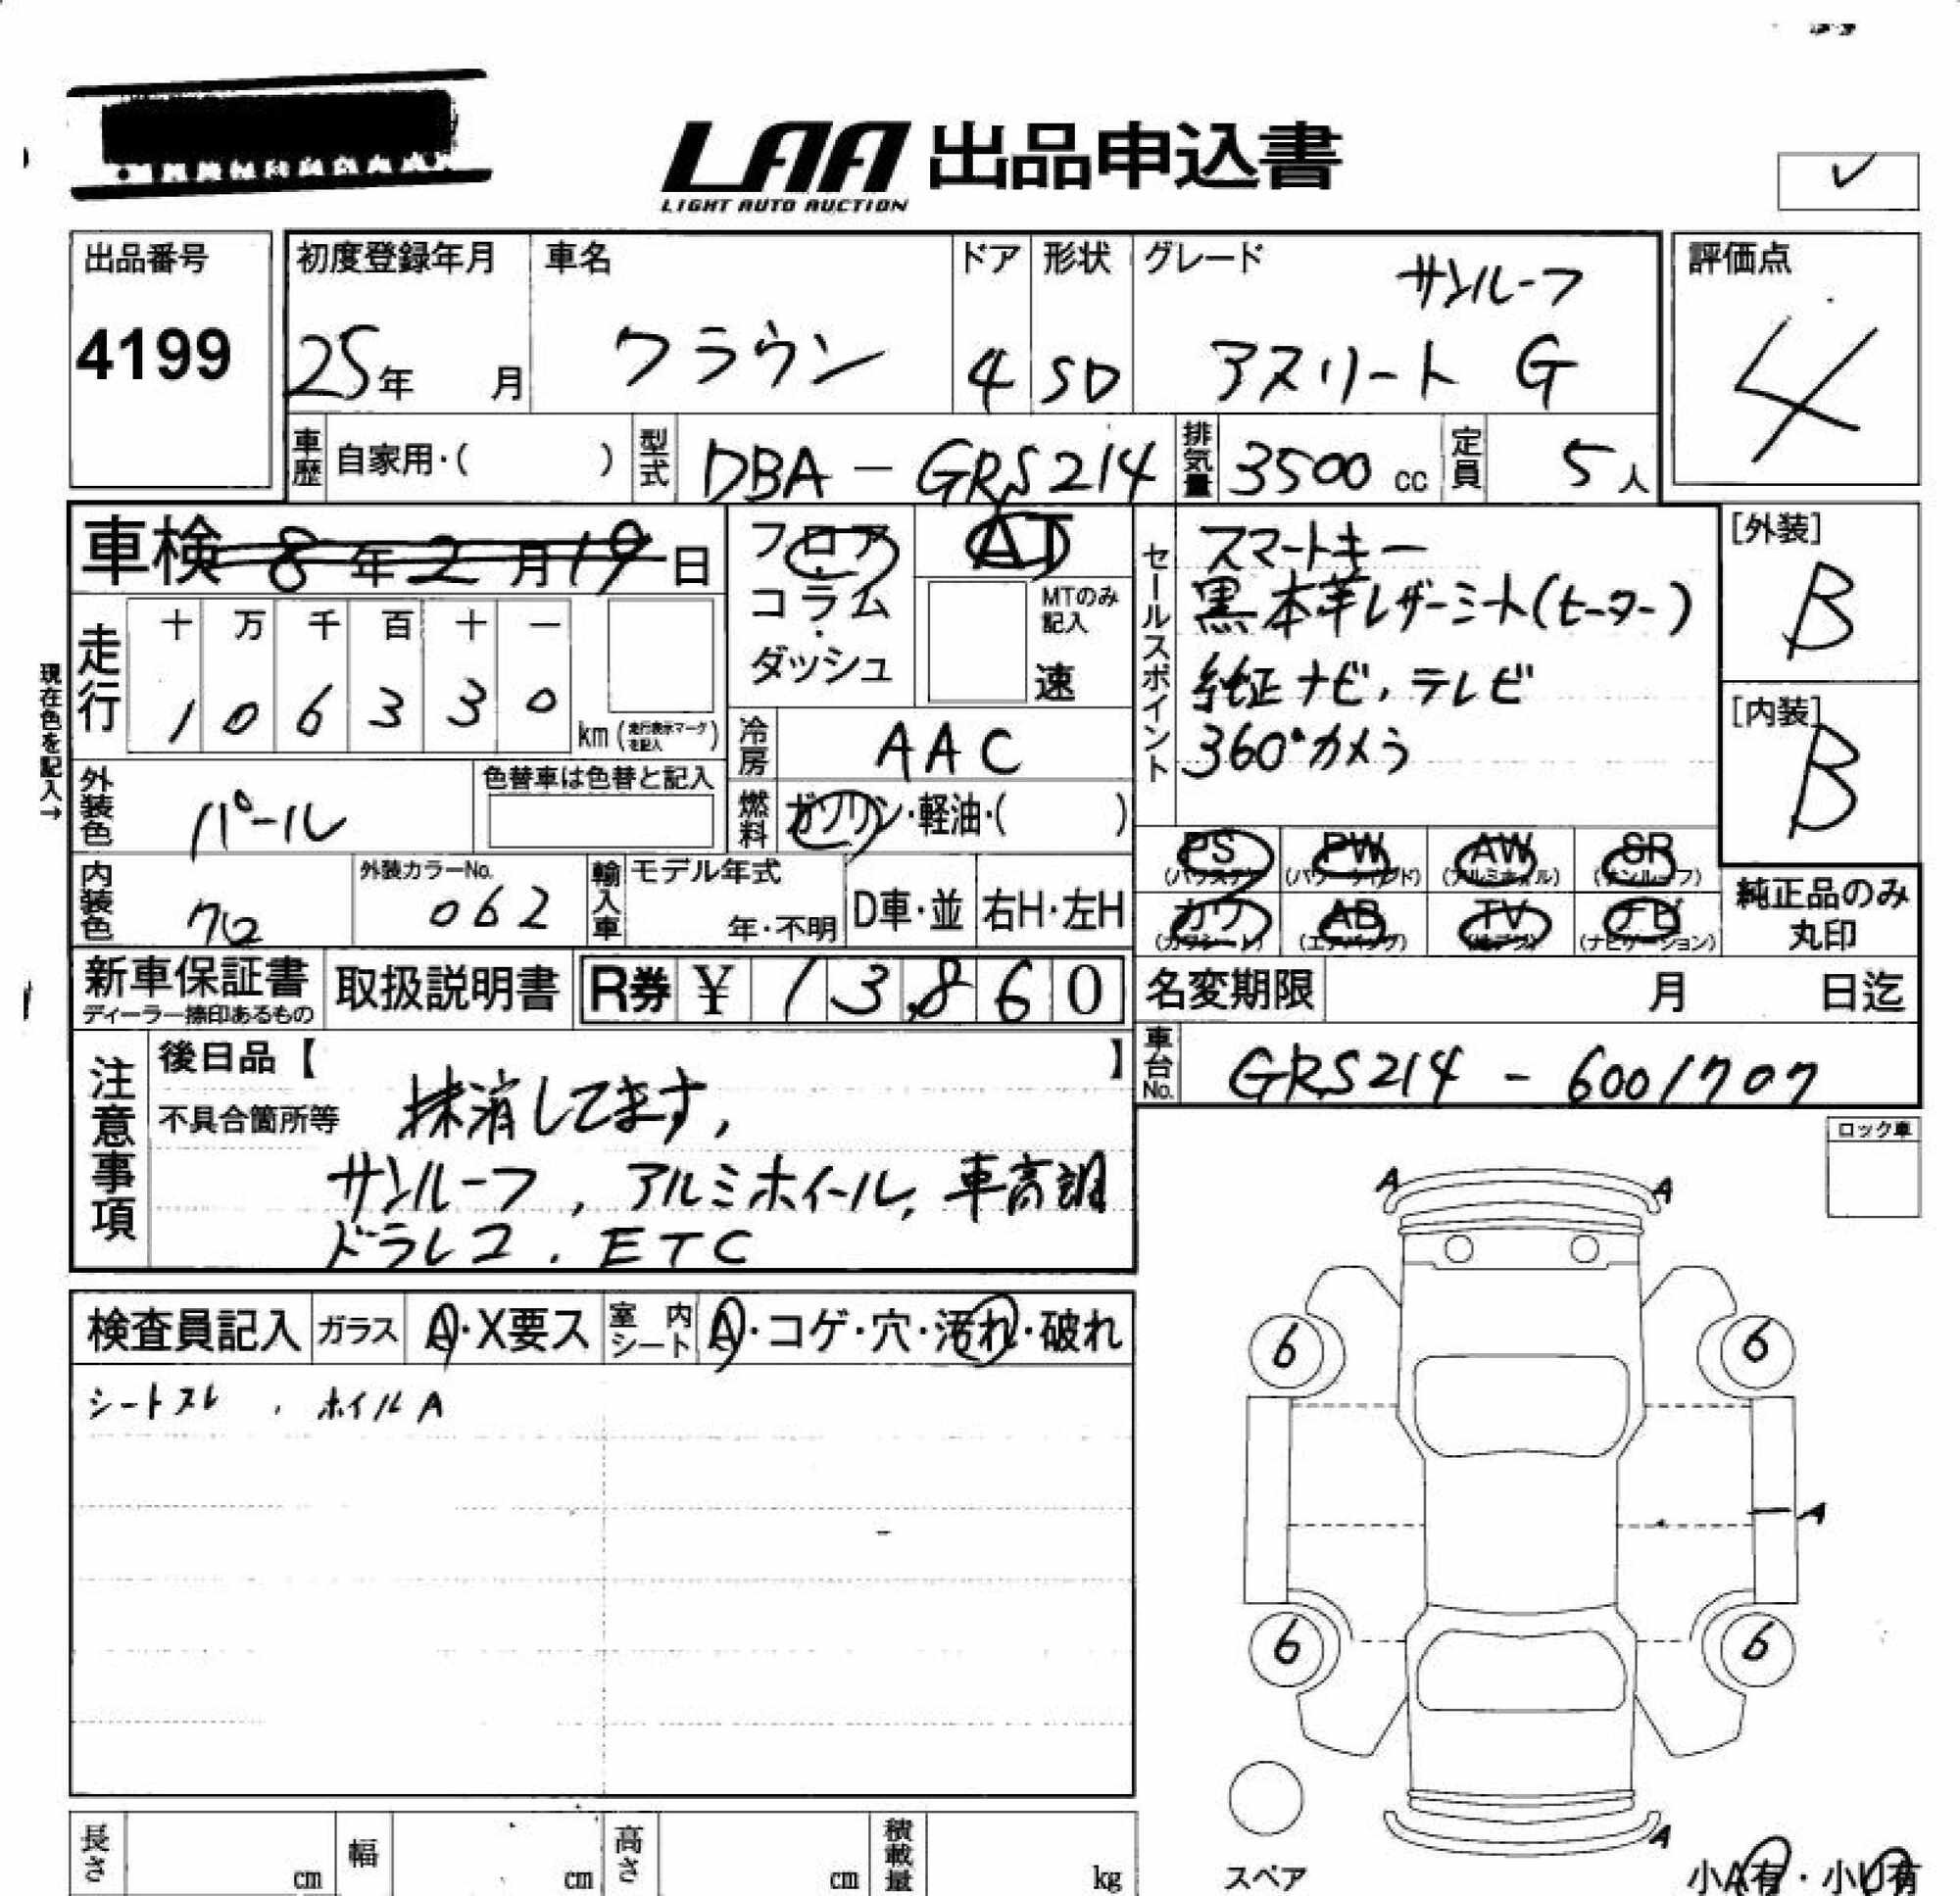 LAA 出品申込書
LIGHT AUTO AUCTION
出品番号
4199
初度登録年月
25年 月
車名
クラウン
ドア
4
形状
SD
グレード
サンルーフ
アスリート G
評価点
4
車歴 自家用・( )
型式 DBA - GRS214
排気量 3500 cc
定員 5人
車検 8年2月19日
フロア・コラム・ダッシュ
AT
MTのみ記入
速
セールスポイント
スマートキー
黒本革レザーシート(ヒーター)
純正ナビ、テレビ
360°カメラ
[外装]
B
[内装]
B
現在色を記入→
走行
十 万 千 百 十 一
1 0 6 3 3 0
km (走行表示マークを記入)
冷房 AAC
外装色 パール
色替車は色替と記入
燃料 ガソリン・軽油・( )
PS (パワステ)
PW (パワーウィンド)
AW (アルミホイル)
SR (サンルーフ)
カワ (カワシート)
AB (エアバッグ)
TV (テレビ)
ナビ (ナビゲーション)
純正品のみ丸印
内装色 クロ
外装カラーNo.
062
輸入車
モデル年式
年・不明
D車・並
右H・左H
新車保証書
ディーラー捺印あるもの
取扱説明書
R券 ¥ 13860
名変期限 月 日迄
車台No. GRS214 - 6001707
注意事項
後日品【 】
不具合箇所等
抹消してます,
サンルーフ, アルミホイール, 車高調
ドラレコ. ETC
ロック車
検査員記入
ガラス A・X要ス
室内シート A・コゲ・穴・汚れ・破れ
シートスレ, ホイルA
A A
6 6
A
6 6
A
スペア
小A有・小U有
長さ cm
幅 cm
高さ cm
積載量 kg